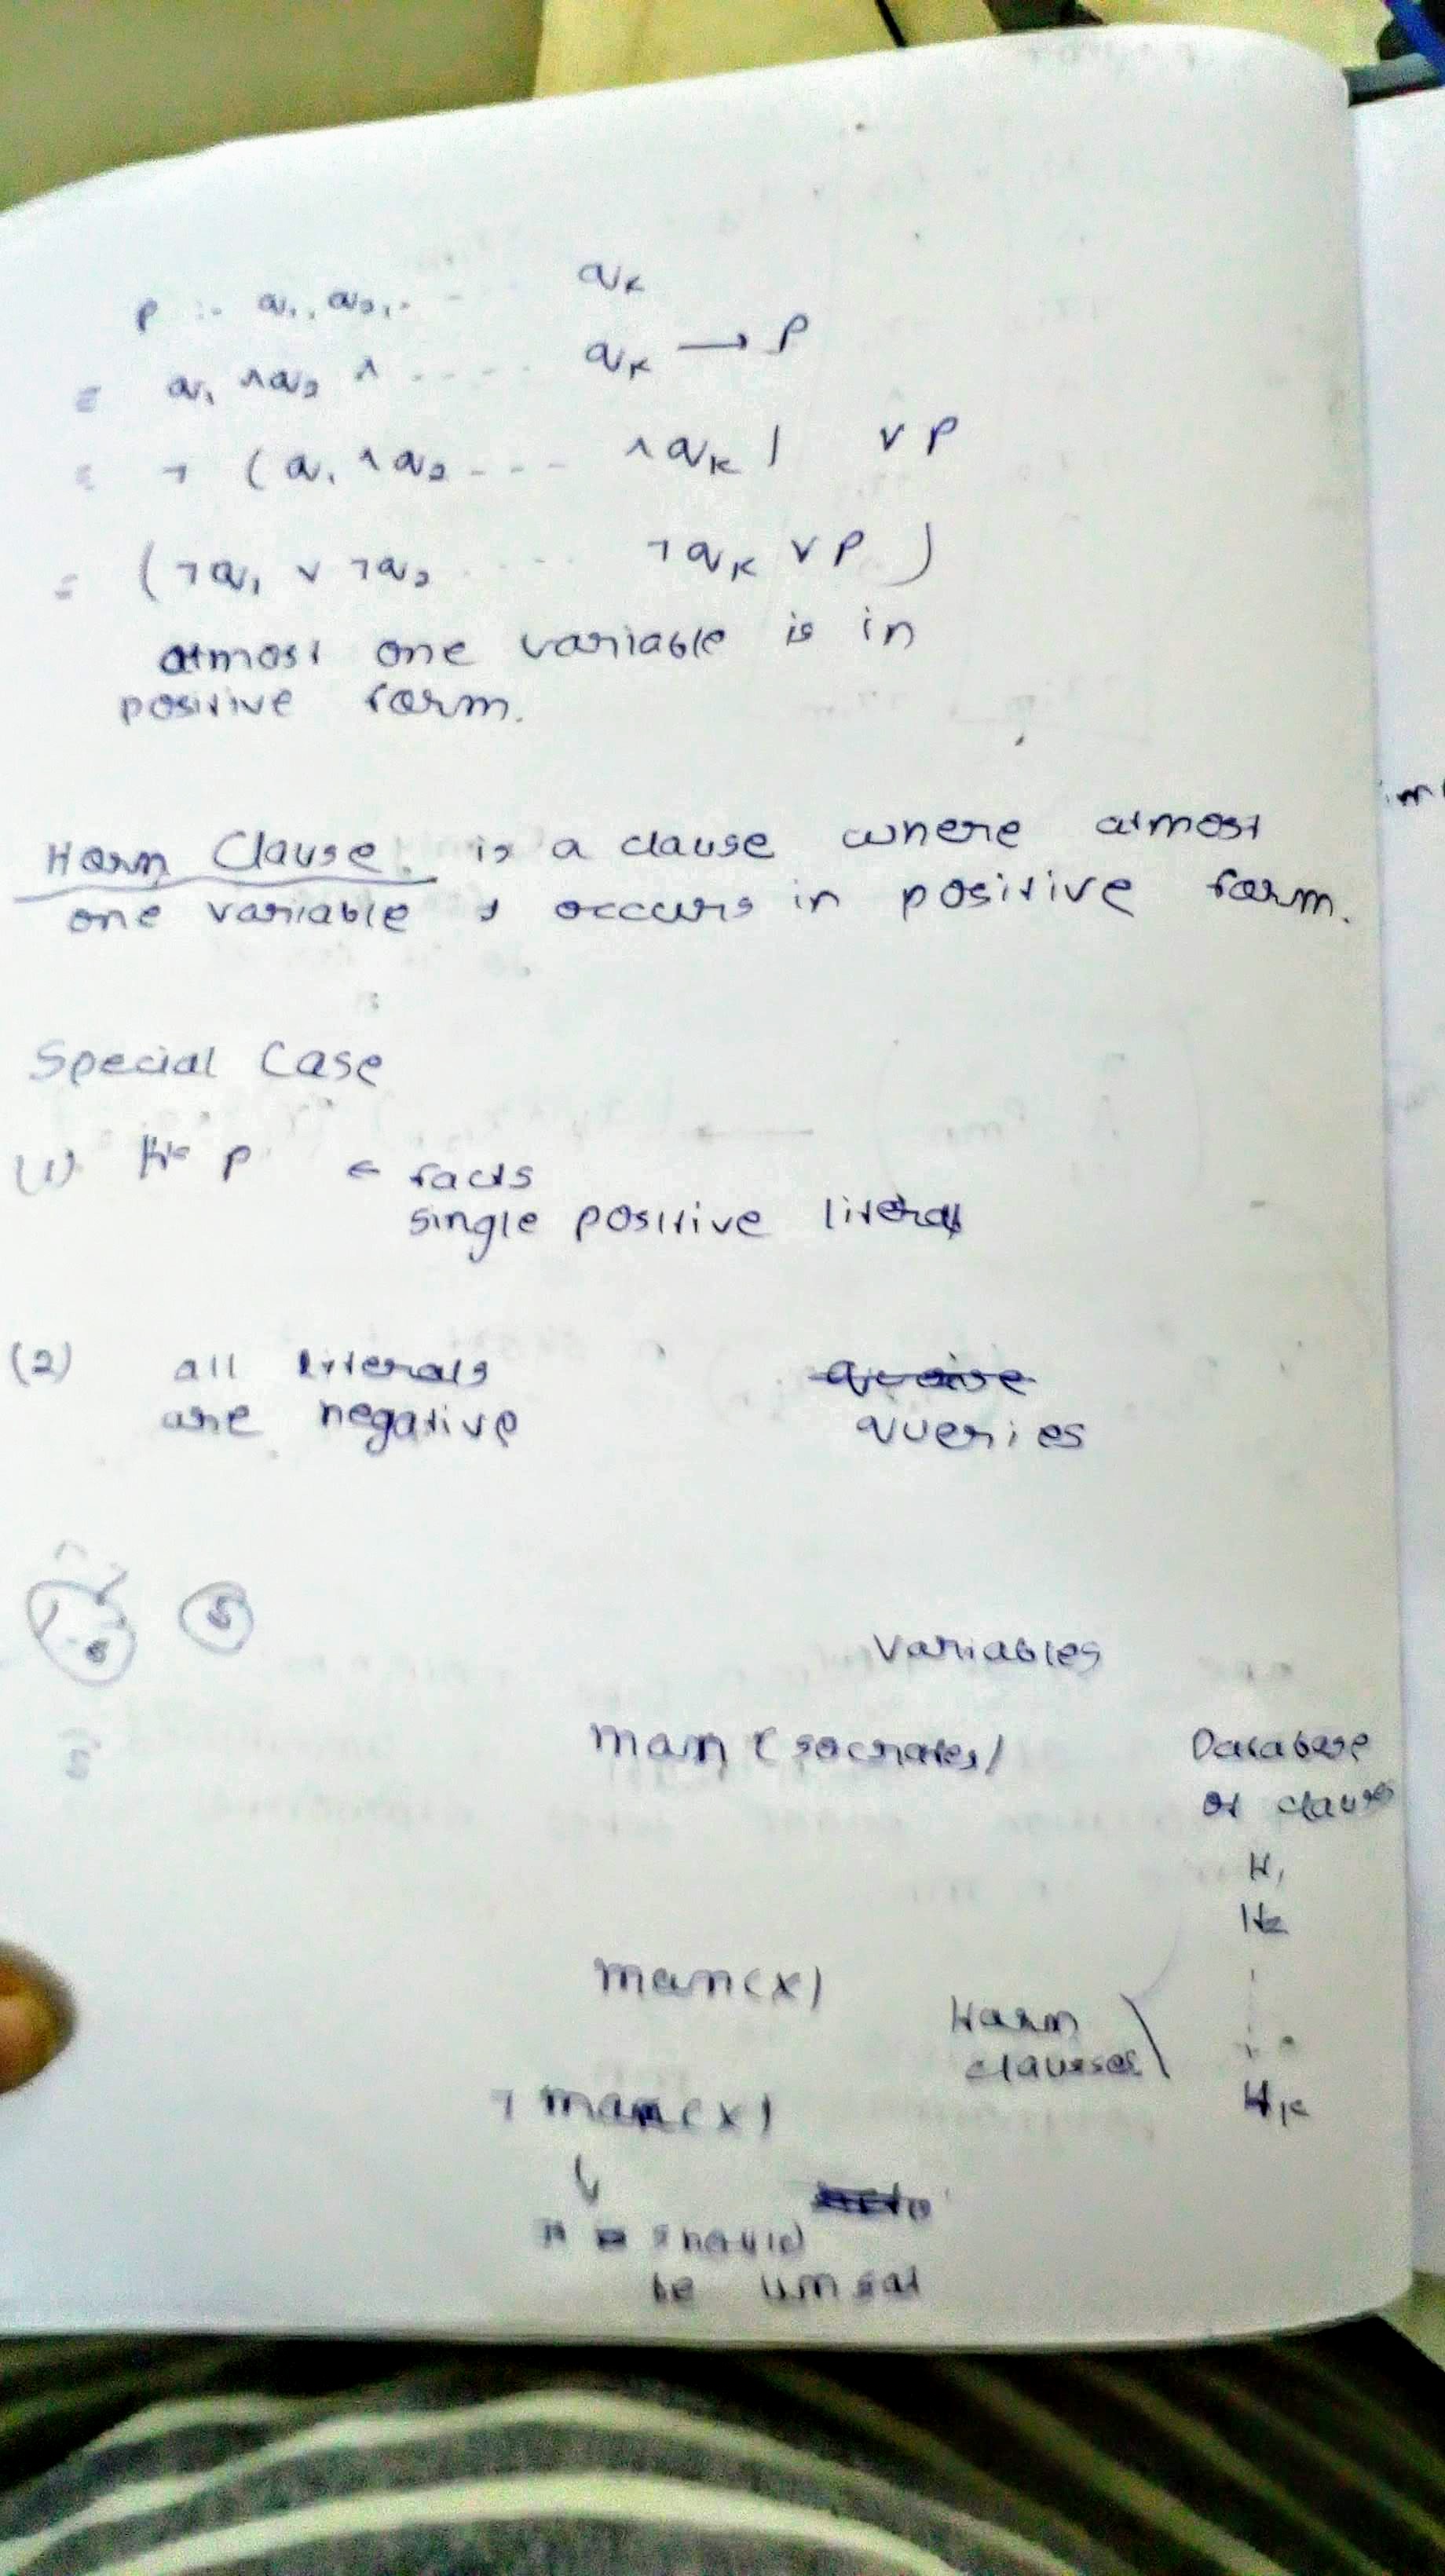 p :- q₁, q₂, . - - qₖ
≡ q₁ ∧ q₂ ∧ - - - - qₖ → p
≡ ¬ (q₁ ∧ q₂ - - - ∧ qₖ) ∨ p
≡ (¬q₁ ∨ ¬q₂ - - - ¬qₖ ∨ p)
atmost one variable is in
positive form.
Horn Clause: is a clause where atmost
one variable occurs in positive form.
Special Case
(1) p ← facts
single positive literal
(2) all literals
are negative queries
5
Variables
man (socrates)
Database
of clauses
H₁
H₂
man(x)
Horn
clauses
Hₖ
¬ man(x)
↓
should
be unsat